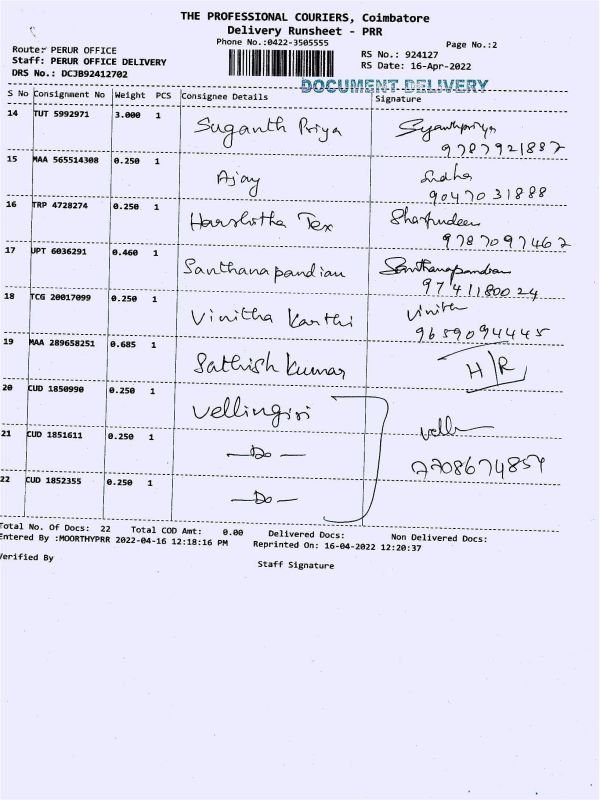 THE PROFESSIONAL COURIERS, Coimbatore
Delivery Runsheet - PRR
Phone No.:0422-3505555
Page No.:2
Route: PERUR OFFICE
Staff: PERUR OFFICE DELIVERY
DRS No.: DCJB92412702
RS No.: 924127
RS Date: 16-Apr-2022
DOCUMENT DELIVERY
S No Consignment No Weight PCS Consignee Details Signature
14 TUT 5992971 3.000 1 Suganth Priya
9787921887
15 MAA 565514308 0.250 1 Ajay Indha
9047031888
16 TRP 4728274 0.250 1 Harshitha Tex Sharfudeen
9787097462
17 UPT 6036291 0.460 1 Santhanapandian Santhanapandian
9741180024
18 TCG 20017099 0.250 1 Vinitha Karthi Vinith
9659094445
19 MAA 289658251 0.685 1 Sathish Kumar H/R
20 CUD 1850990 0.250 1 Vellingiri
21 CUD 1851611 0.250 1 — Do — Velli
7708674859
22 CUD 1852355 0.250 1 — Do —
Total No. Of Docs: 22 Total COD Amt: 0.00 Delivered Docs: Non Delivered Docs:
Entered By :MOORTHYPRR 2022-04-16 12:18:16 PM Reprinted On: 16-04-2022 12:20:37
Verified By Staff Signature